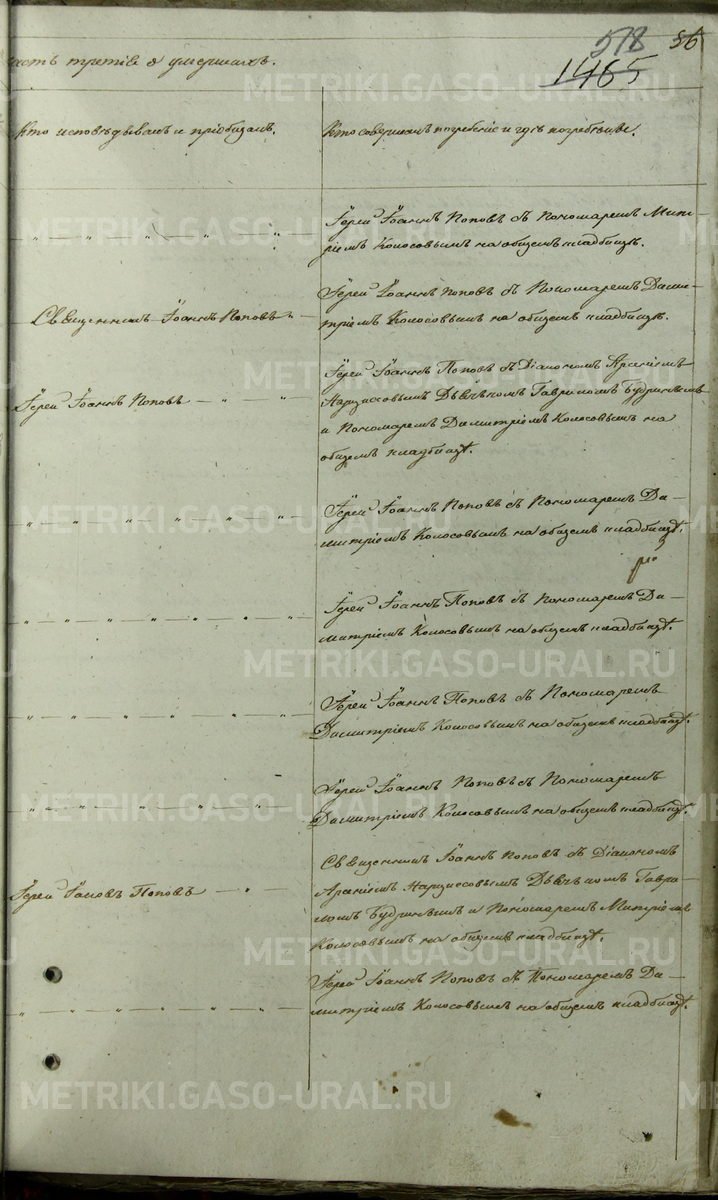 578 56
1465
часть третiя о умершихъ.
Кто исповѣдывалъ и прiобщалъ.
Кто совершалъ погребенiе и гдѣ погребены.
Iерей Iоаннъ Поповъ съ Пономаремъ Мит-
рiемъ Колосовымъ на общемъ кладбищѣ.
Священникъ Iоаннъ Поповъ
Iерей Iоаннъ Поповъ съ Пономаремъ Дими-
трiемъ Колосовымъ на общемъ кладбищѣ.
Iерей Iоаннъ Поповъ
Iерей Iоаннъ Поповъ съ Дiакономъ
Нарциссовымъ Дьячкомъ Гавриломъ Будринымъ
и Пономаремъ Димитрiемъ Колосовымъ на
общемъ кладбищѣ.
Iерей Iоаннъ Поповъ съ Пономаремъ Ди-
митрiемъ Колосовымъ на общемъ кладбищѣ.
Iерей Iоаннъ Поповъ съ Пономаремъ Ди-
митрiемъ Колосовымъ на общемъ кладбищѣ.
Iерей Iоаннъ Поповъ съ Пономаремъ
Димитрiемъ Колосовымъ на общемъ кладбищѣ.
Iерей Iоаннъ Поповъ съ Пономаремъ
Димитрiемъ Колосовымъ на общемъ кладбищѣ
Iерей Iаковъ Поповъ
Священникъ Iоаннъ Поповъ съ Дiакономъ
Нарциссовымъ Дьячкомъ Гаври-
ломъ Будринымъ и Пономаремъ Митрiемъ
Колосовымъ на общемъ кладбищѣ.
Iерей Iоаннъ Поповъ съ Пономаремъ Ди-
митрiемъ Колосовымъ на общемъ кладбищѣ.
METRIKI.GASO-URAL.RU